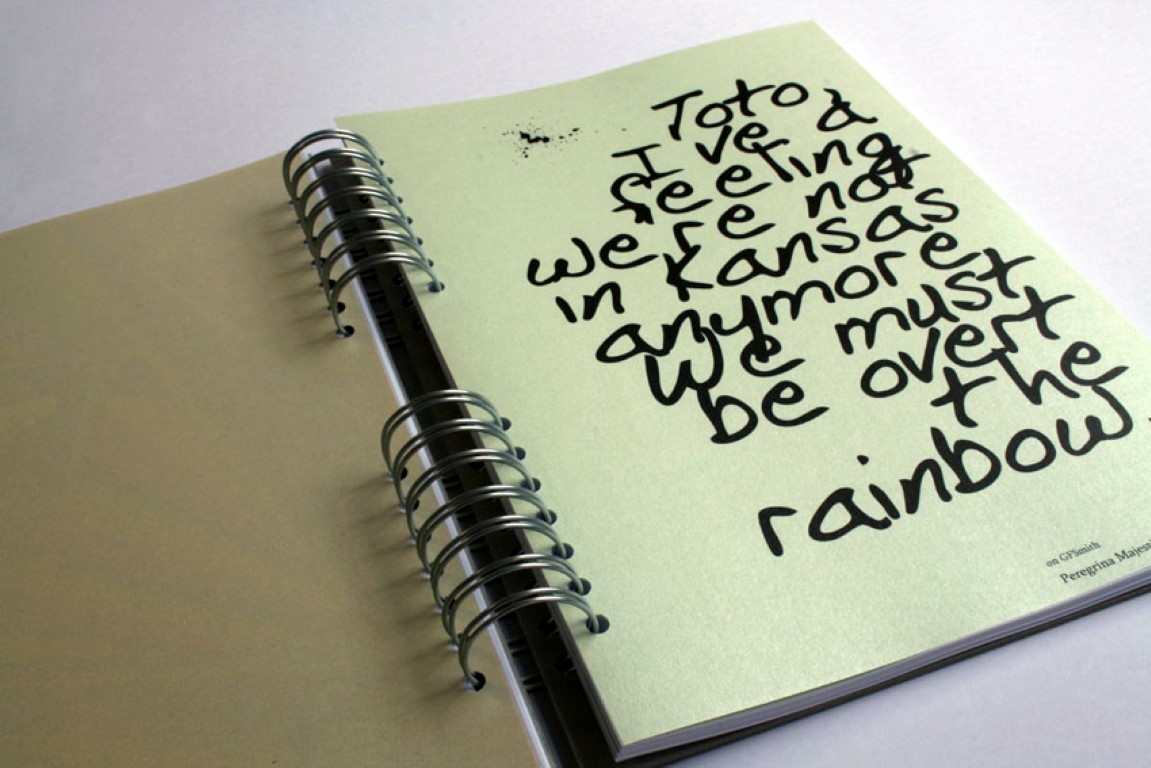 Toto
I've a
feeling
we're not
in Kansas
anymore
We must
be over
the
rainbow.
on GFSmith
Peregrina Majesti